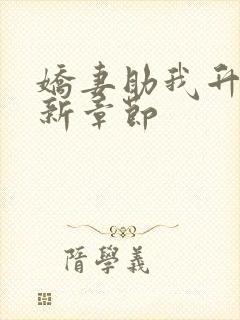 嬌妻助我升
新章節
隋學義